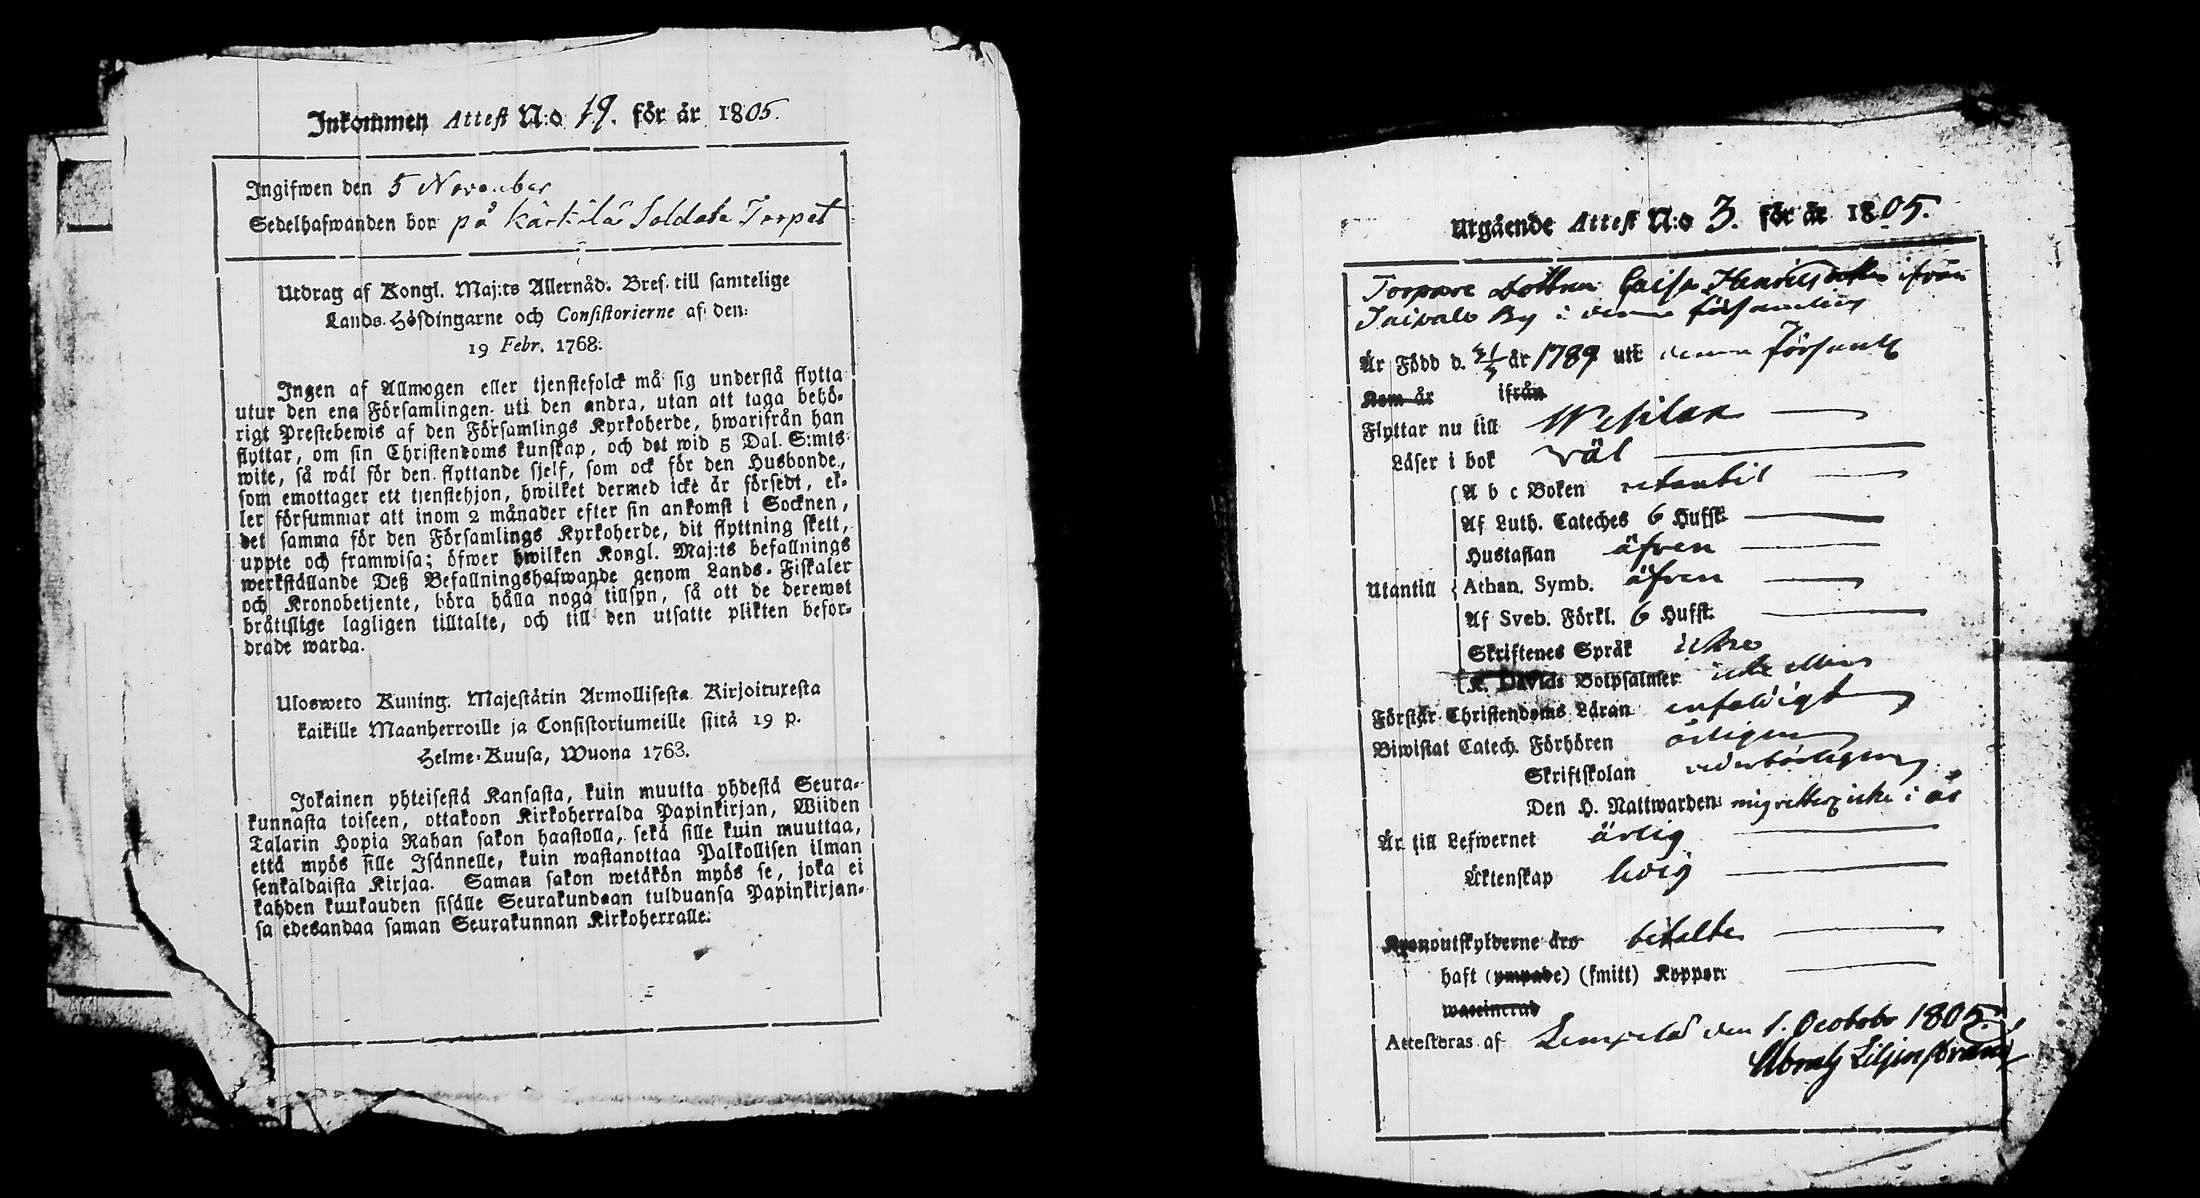 Inkommen Attest N:o 19. för år 1805.
Ingifwen den 5 November
Sedelhafwanden bor på Kärkilä Soldate Torpet
Utdrag af Kongl. Maj:ts Allernåd. Bref till samtelige
Lands-Höfdingarne och Consistorierne af den
19 Febr. 1768.
Ingen af Allmogen eller tjenstefolck må sig understå flytta
utur den ena Församlingen uti den andra, utan att taga behö-
rigt Prestebewis af den Församlings Kyrkoherde, hwarifrån han
flyttar, om sin Christendoms kunskap, och det wid 5 Dal. S:mts
wite, så wäl för den flyttande sjelf, som ock för den Husbonde,
som emottager ett tjenstehjon, hwilket dermed icke är försedt, el-
ler försummar att inom 2 månader efter sin ankomst i Socknen,
det samma för den Församlings Kyrkoherde, dit flyttning skett,
uppte och framwisa; öfwer hwilken Kongl. Maj:ts befallnings
werkställande Deß Befallningshafwande genom Lands-Fiskaler
och Kronobetjente, böra hålla noga tillsyn, så att de deremot
bråttslige lagligen tilltalte, och till den utsatte plikten befor-
drade warda.
Ulosweto Kuning. Majestätin Armollisesta Kirjoituresta
kaikille Maanherroille ja Consistoriumeille siitä 19 p.
Helme-Kuusa, Wuona 1763.
Jokainen yhteisestä Kansasta, kuin muutta yhdestä Seura-
kunnasta toiseen, ottakoon Kirkoherralda Papinkirjan, Wiiden
Talarin Hopia Rahan sakon haastolla, sekä sille kuin muuttaa,
että myös sille Isännelle, kuin wastanottaa Palkollisen ilman
senkaldaista Kirjaa. Saman sakon wetäkön myös se, joka ei
kahden kuukauden sisälle Seurakundaan tulduansa Papinkirjan-
sa edesandaa saman Seurakunnan Kirkoherralle.
Utgående Attest N:o 3. för år 1805.
Torpare dottren Caisa Henricsdotter ifrån
By i denna församling
Är Född d. år 1789 uti denna Församl
Kom år ifrån
Flyttar nu till Wesilax
Läser i bok väl
A b c Boken utantil
Af Luth. Cateches 6 Hufst.
Hustaflan äfven
Utantill Athan. Symb. äfven
Af Sveb. Förkl. 6 Hufst.
Skriftenes Språk icke
K. Davids Botpsalmer icke eller
Förstår Christendoms Läran enfaldigt
Biwistat Catech. Förhören årligen
Skriftskolan vederbörligen
Den H. Nattwarden icke i år
Är till Lefwernet ärlig
Äktenskap ledig
Kronoutskylderne äro betalte
haft (ympade) (smitt) Koppor
Attesteras af Lempälä den 1. October 1805.
Abrah Liljenstrand